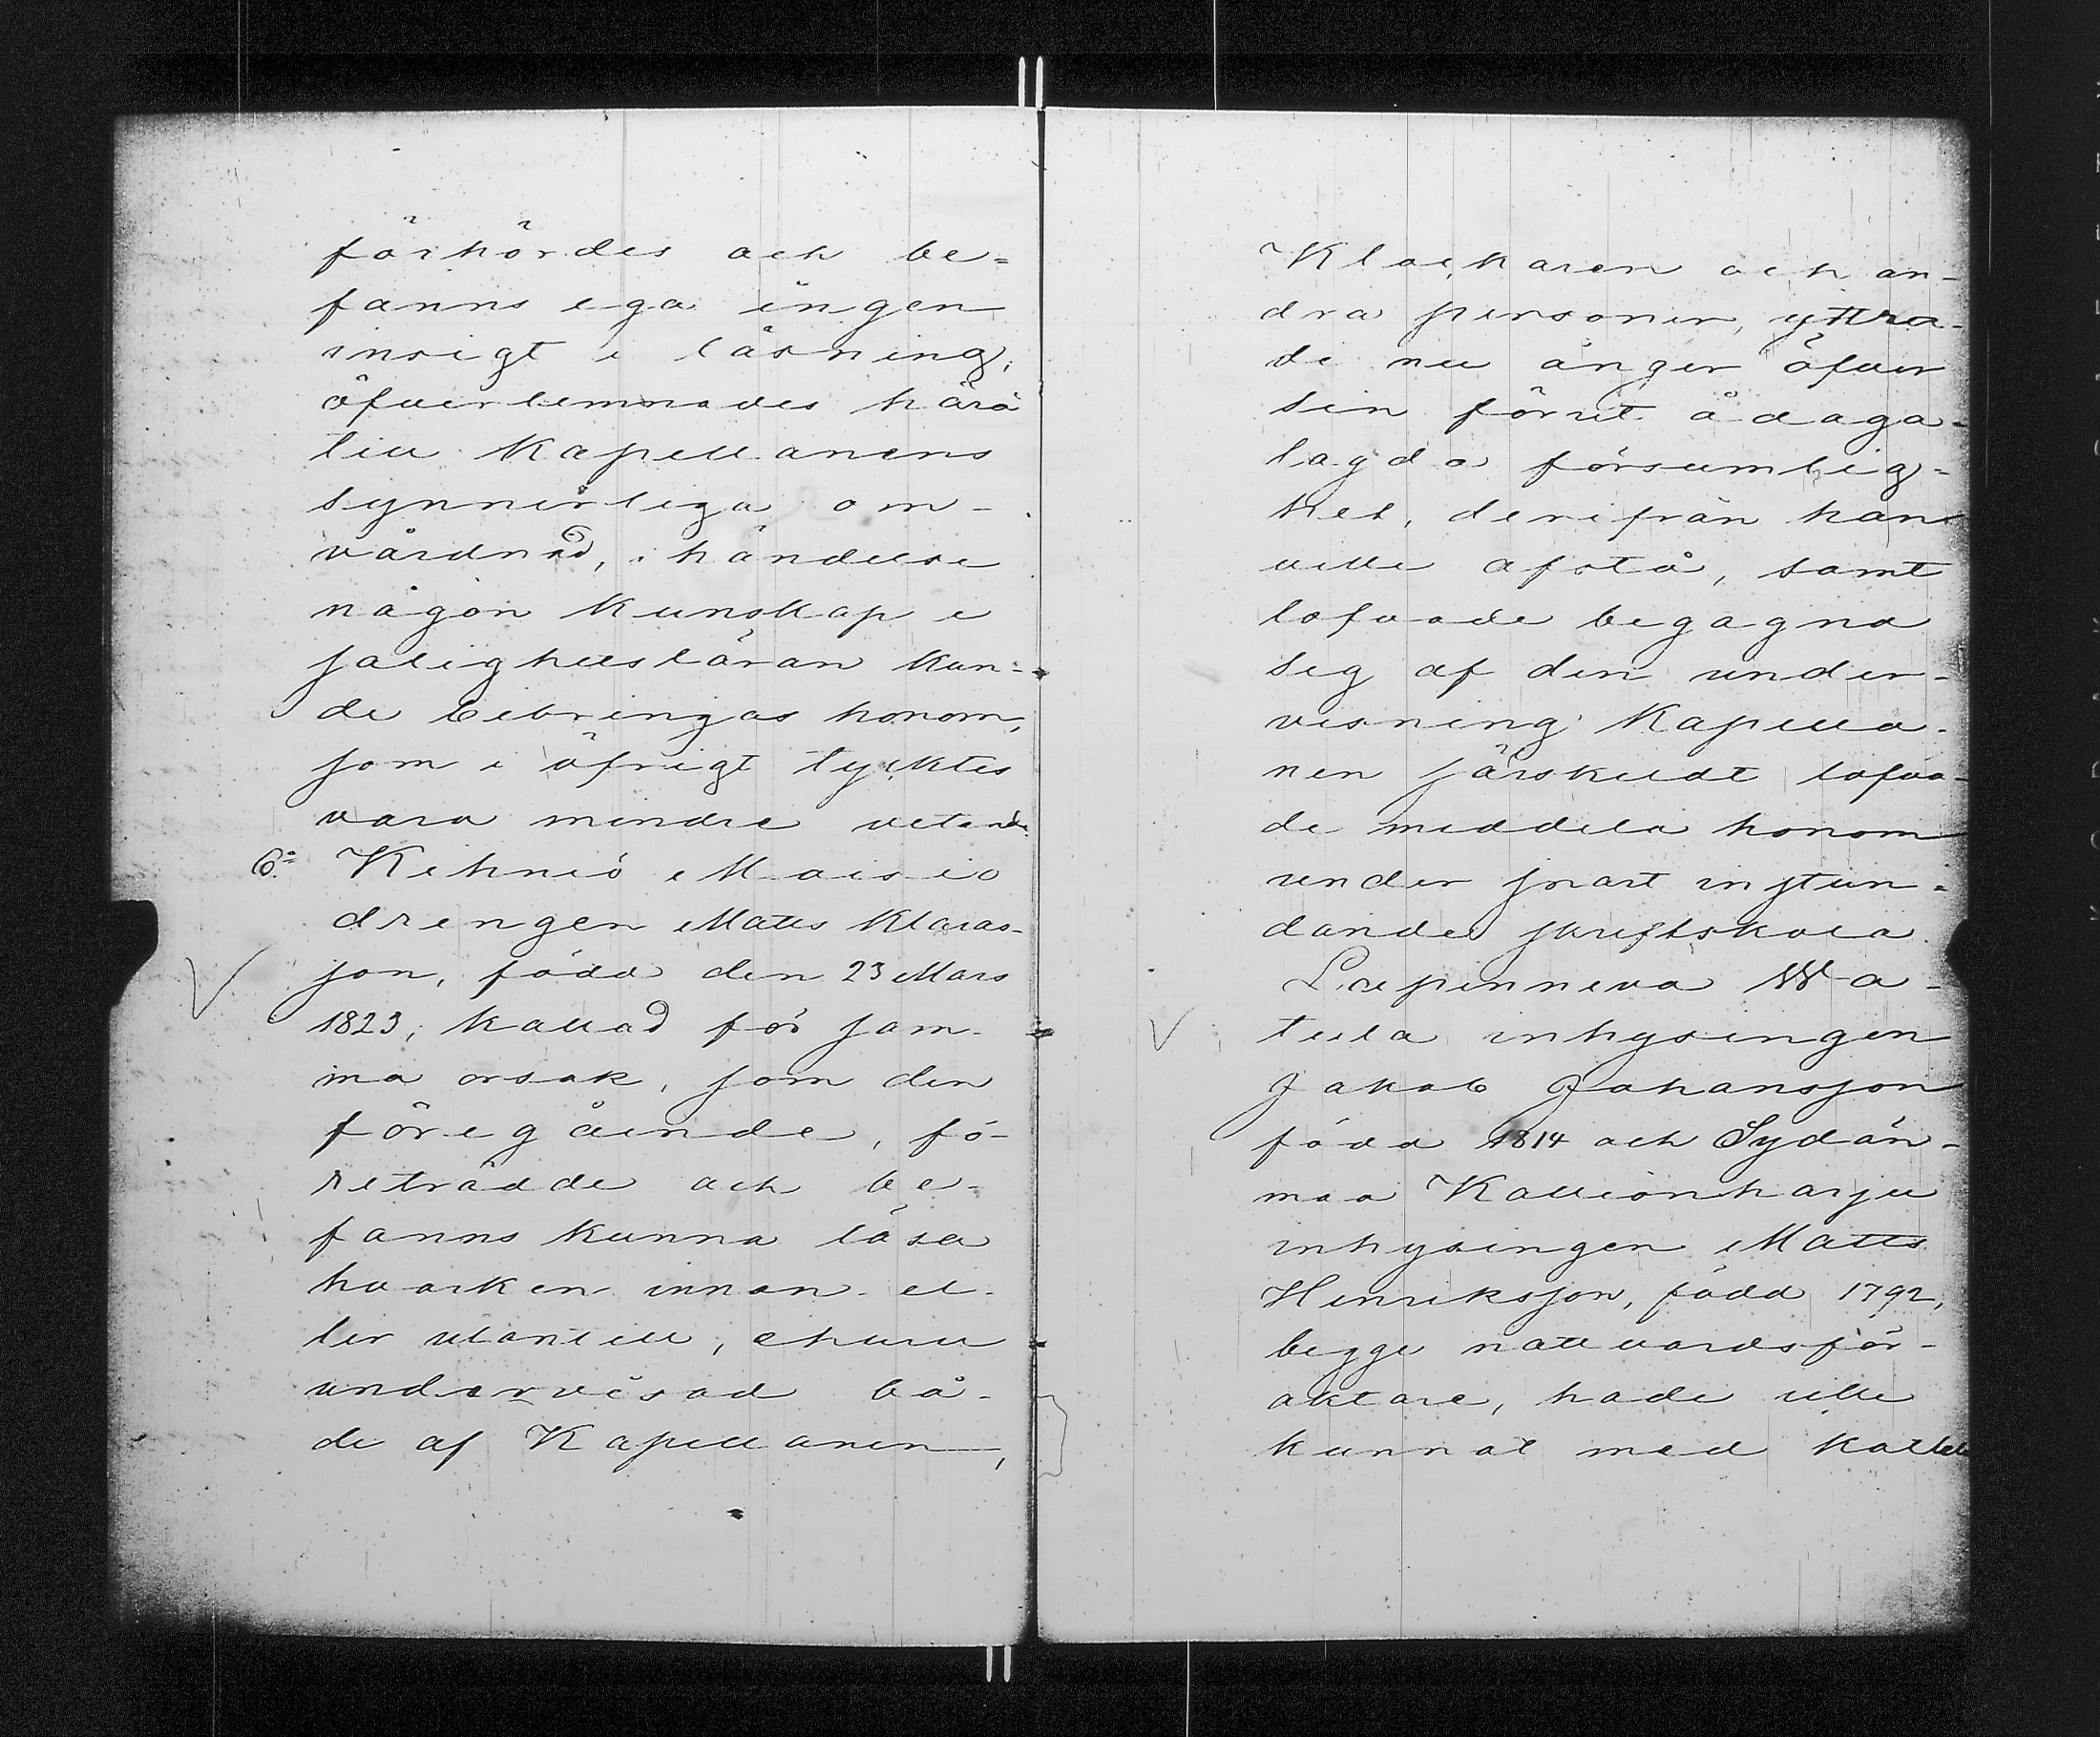 förhördes och be=
fanns ega ingen
insigt i läsning,
öfverlemnades härå
till Kapellanens
synnerliga om-
vårdnad, i händelse
någon kunskap i
salighetsläran kun-
de bibringas honom,
som i öfrigt tycktes
vara mindre vetande.
6:o Kihniö Maisio
drengen Matts Klaras-
son, född den 23 Mars
1823, kallad för sam-
ma orsak, som den
föregående, fö-
reträdde och be-
fanns kunna läsa
hvarken innan el-
ler utantill, ehuru
undervisad bå-
de af Kapellanen,
Klockaren och an-
dra personer, yttra-
de nu ånger öfver
sin förut ådaga-
lagda försumlig-
het, derifrån han
ville afstå, samt
lofvade begagna
sig af den under-
visning Kapella-
nen särskildt lofva-
de meddela honom
under snart instun-
dande skriftskola
Luepinneva Wa-
tula inhysingen
Jakob Johansson
född 1814 och Sydän-
maa Kallionharju
inhysingen Matts
Henriksson, född 1792,
begge nattvardsför-
aktare, hade icke
kunnat med kallelse